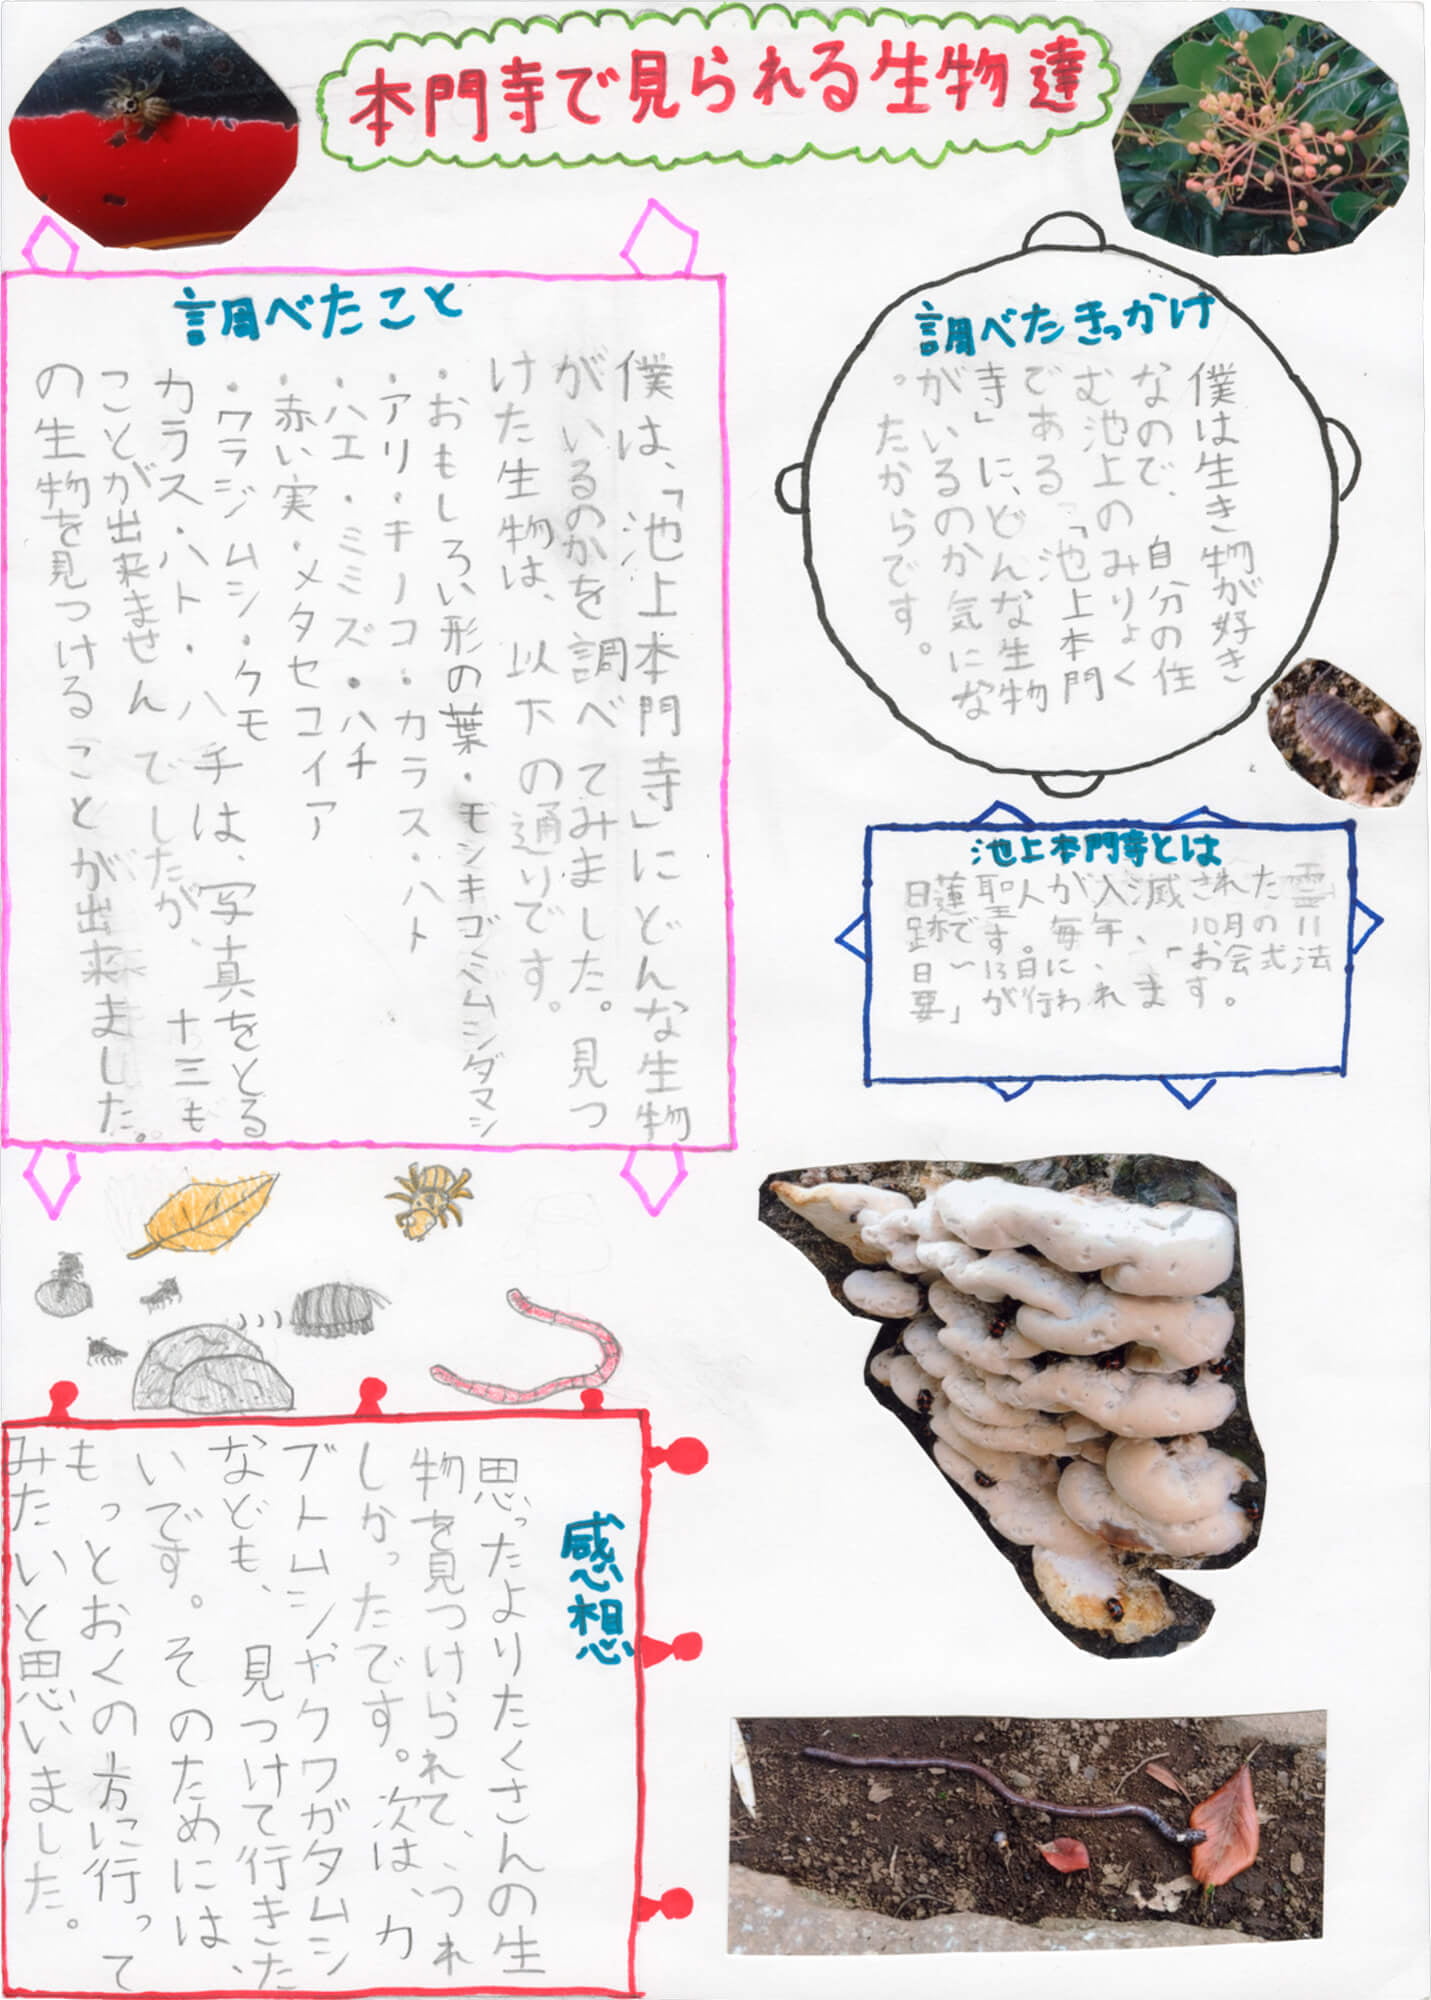 本門寺で見られる生物達
調べたきっかけ
僕は生き物が好き
なので、自分の住
む池上のみりょく
である「池上本門
寺」に、どんな生物
がいるのか気にな
ったからです。
池上本門寺とは
日蓮聖人が入滅された霊
跡です。毎年、10月の11
日〜13日に、「お会式法
要」が行われます。
調べたこと
僕は、「池上本門寺」にどんな生物
がいるのかを調べてみました。見つ
けた生物は、以下の通りです。
・おもしろい形の葉・モンキゴミムシダマシ
・アリ・キノコ・カラス・ハト
・ハエ・ミミズ・ハチ
・赤い実・メタセコイア
・ワラジムシ・クモ
カラス・ハト・ハチは、写真をとる
ことが出来ませんでしたが、十三も
の生物を見つけることが出来ました。
感想
思ったよりたくさんの生
物を見つけられて、うれ
しかったです。次は、カ
ブトムシやクワガタムシ
なども、見つけて行きた
いです。そのためには、
もっとおくの方に行って
みたいと思いました。